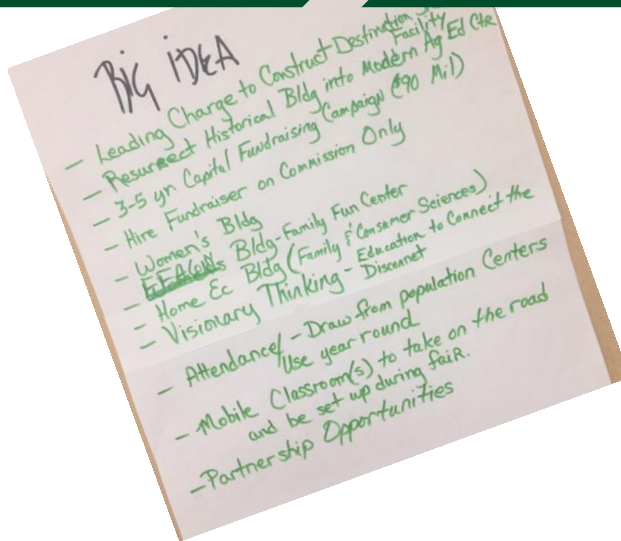 BIG iDEA
- Leading Charge to Construct Destination
Facility
- Resurrect Historical Bldg into Modern Ag Ed Ctr
- 3-5 yr. Capital Fundraising Campaign ($90 Mil)
- Hire Fundraiser on Commission Only
- Women's Bldg
- Bldg - Family Fun Center
- Home Ec Bldg (Family & Consumer Sciences)
- Visionary Thinking - Education to Connect the
Disconnet
- Attendance/ - Draw from population Centers
Use year round
- Mobile Classroom(s) to take on the road
and be set up during faiR.
- Partnership Opportunities